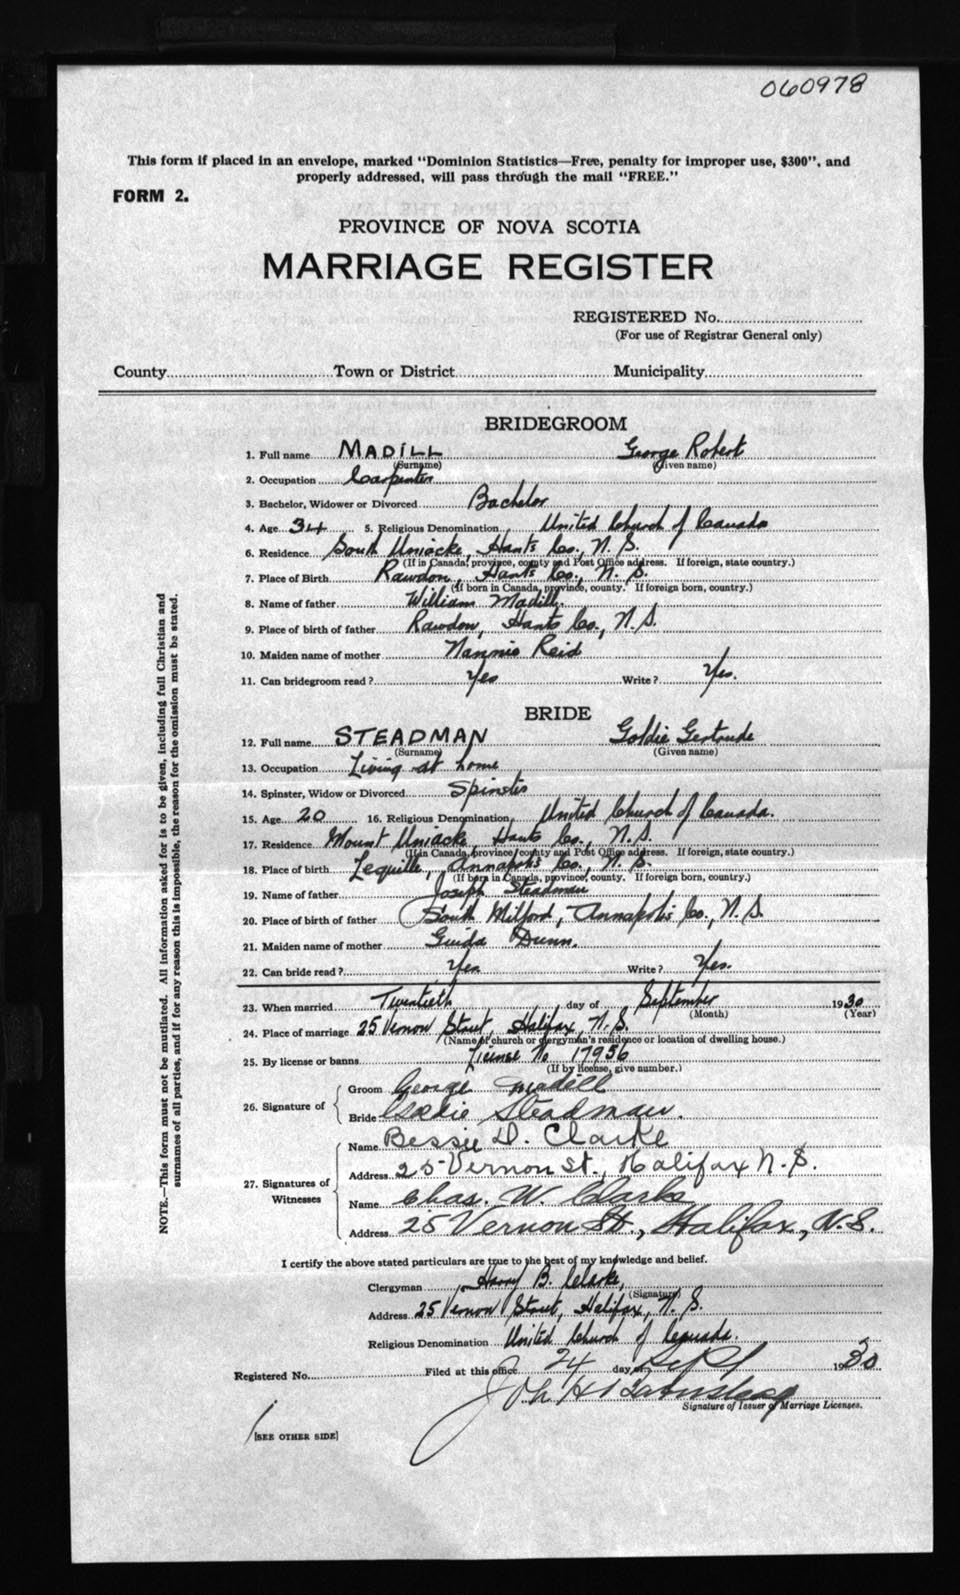 060978
This form if placed in an envelope, marked "Dominion Statistics—Free, penalty for improper use, $300", and
properly addressed, will pass through the mail "FREE."
FORM 2.
PROVINCE OF NOVA SCOTIA
MARRIAGE REGISTER
REGISTERED No.
(For use of Registrar General only)
County Town or District Municipality
BRIDEGROOM
1. Full name MADILL George Robert
(Surname) (Given name)
2. Occupation Carpenter
3. Bachelor, Widower or Divorced Bachelor
4. Age 34 5. Religious Denomination United Church of Canada
6. Residence South Uniacke, Hants Co., N.S.
(If in Canada, province, county and Post Office address. If foreign, state country.)
7. Place of Birth Rawdon, Hants Co., N.S.
(If born in Canada, province, county. If foreign born, country.)
8. Name of father William Madill.
9. Place of birth of father Rawdon, Hants Co., N.S.
10. Maiden name of mother Nannie Reid
11. Can bridegroom read? Yes Write? Yes.
BRIDE
12. Full name STEADMAN Goldie Gertrude
(Surname) (Given name)
13. Occupation Living at home
14. Spinster, Widow or Divorced Spinster
15. Age 20 16. Religious Denomination United Church of Canada.
17. Residence Mount Uniacke, Hants Co., N.S.
(If in Canada, province, county and Post Office address. If foreign, state country.)
18. Place of birth Lequille, Annapolis Co., N.S.
(If born in Canada, province, county. If foreign born, country.)
19. Name of father Joseph Steadman
20. Place of birth of father South Milford, Annapolis Co., N.S.
21. Maiden name of mother Guida Dunn.
22. Can bride read? Yes Write? Yes.
23. When married Twentieth day of September 1930
(Month) (Year)
24. Place of marriage 25 Vernon Street, Halifax, N.S.
(Name of church or clergyman's residence or location of dwelling house.)
25. By license or banns License No 17956
(If by license, give number.)
26. Signature of Groom George Madill
Bride Goldie Steadman.
27. Signatures of Witnesses
Name Bessie D. Clarke
Address 25 Vernon St., Halifax N.S.
Name Chas. W. Clarke
Address 25 Vernon St., Halifax, N.S.
I certify the above stated particulars are true to the best of my knowledge and belief.
Clergyman Harry B. Clarke,
(Signature)
Address 25 Vernon Street, Halifax, N.S.
Religious Denomination United Church of Canada.
Registered No. Filed at this office 24 day of Sept 1930
John H
Signature of Issuer of Marriage Licenses.
[SEE OTHER SIDE]
NOTE.—This form must not be mutilated. All information asked for is to be given, including full Christian and
surnames of all parties, and if for any reason this is impossible, the reason for the omission must be stated.